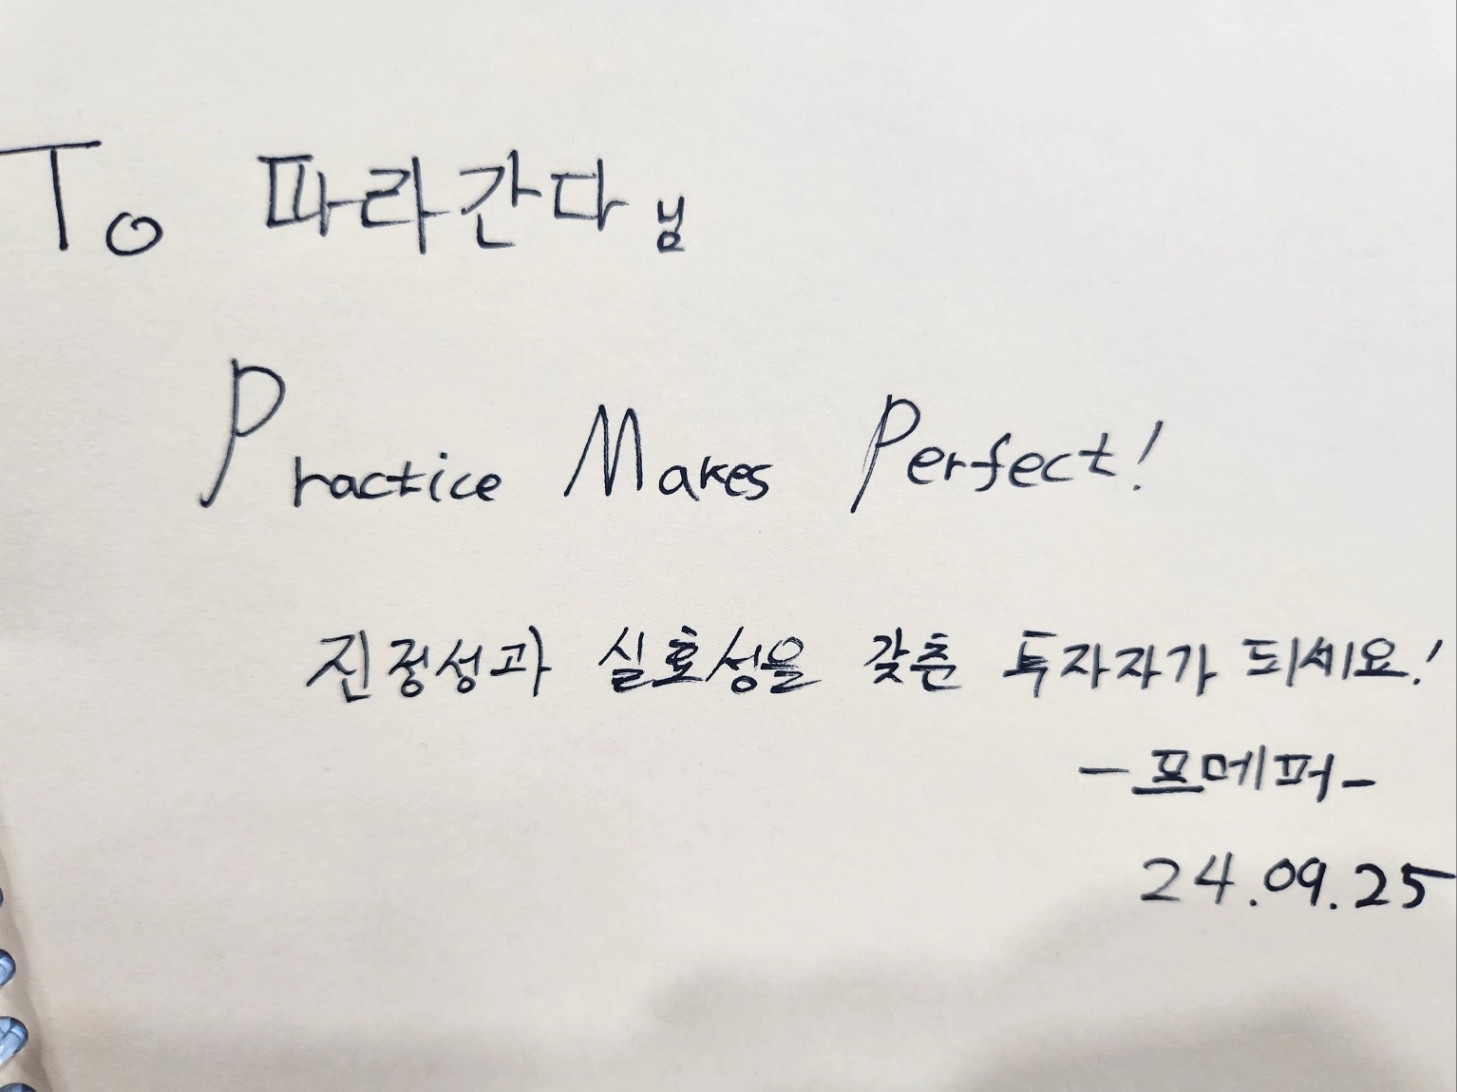 To 파라간다님
Practice Makes Perfect!
진정성과 실효성을 갖춘 투자자가 되세요!
- 프메퍼 -
24.09.25